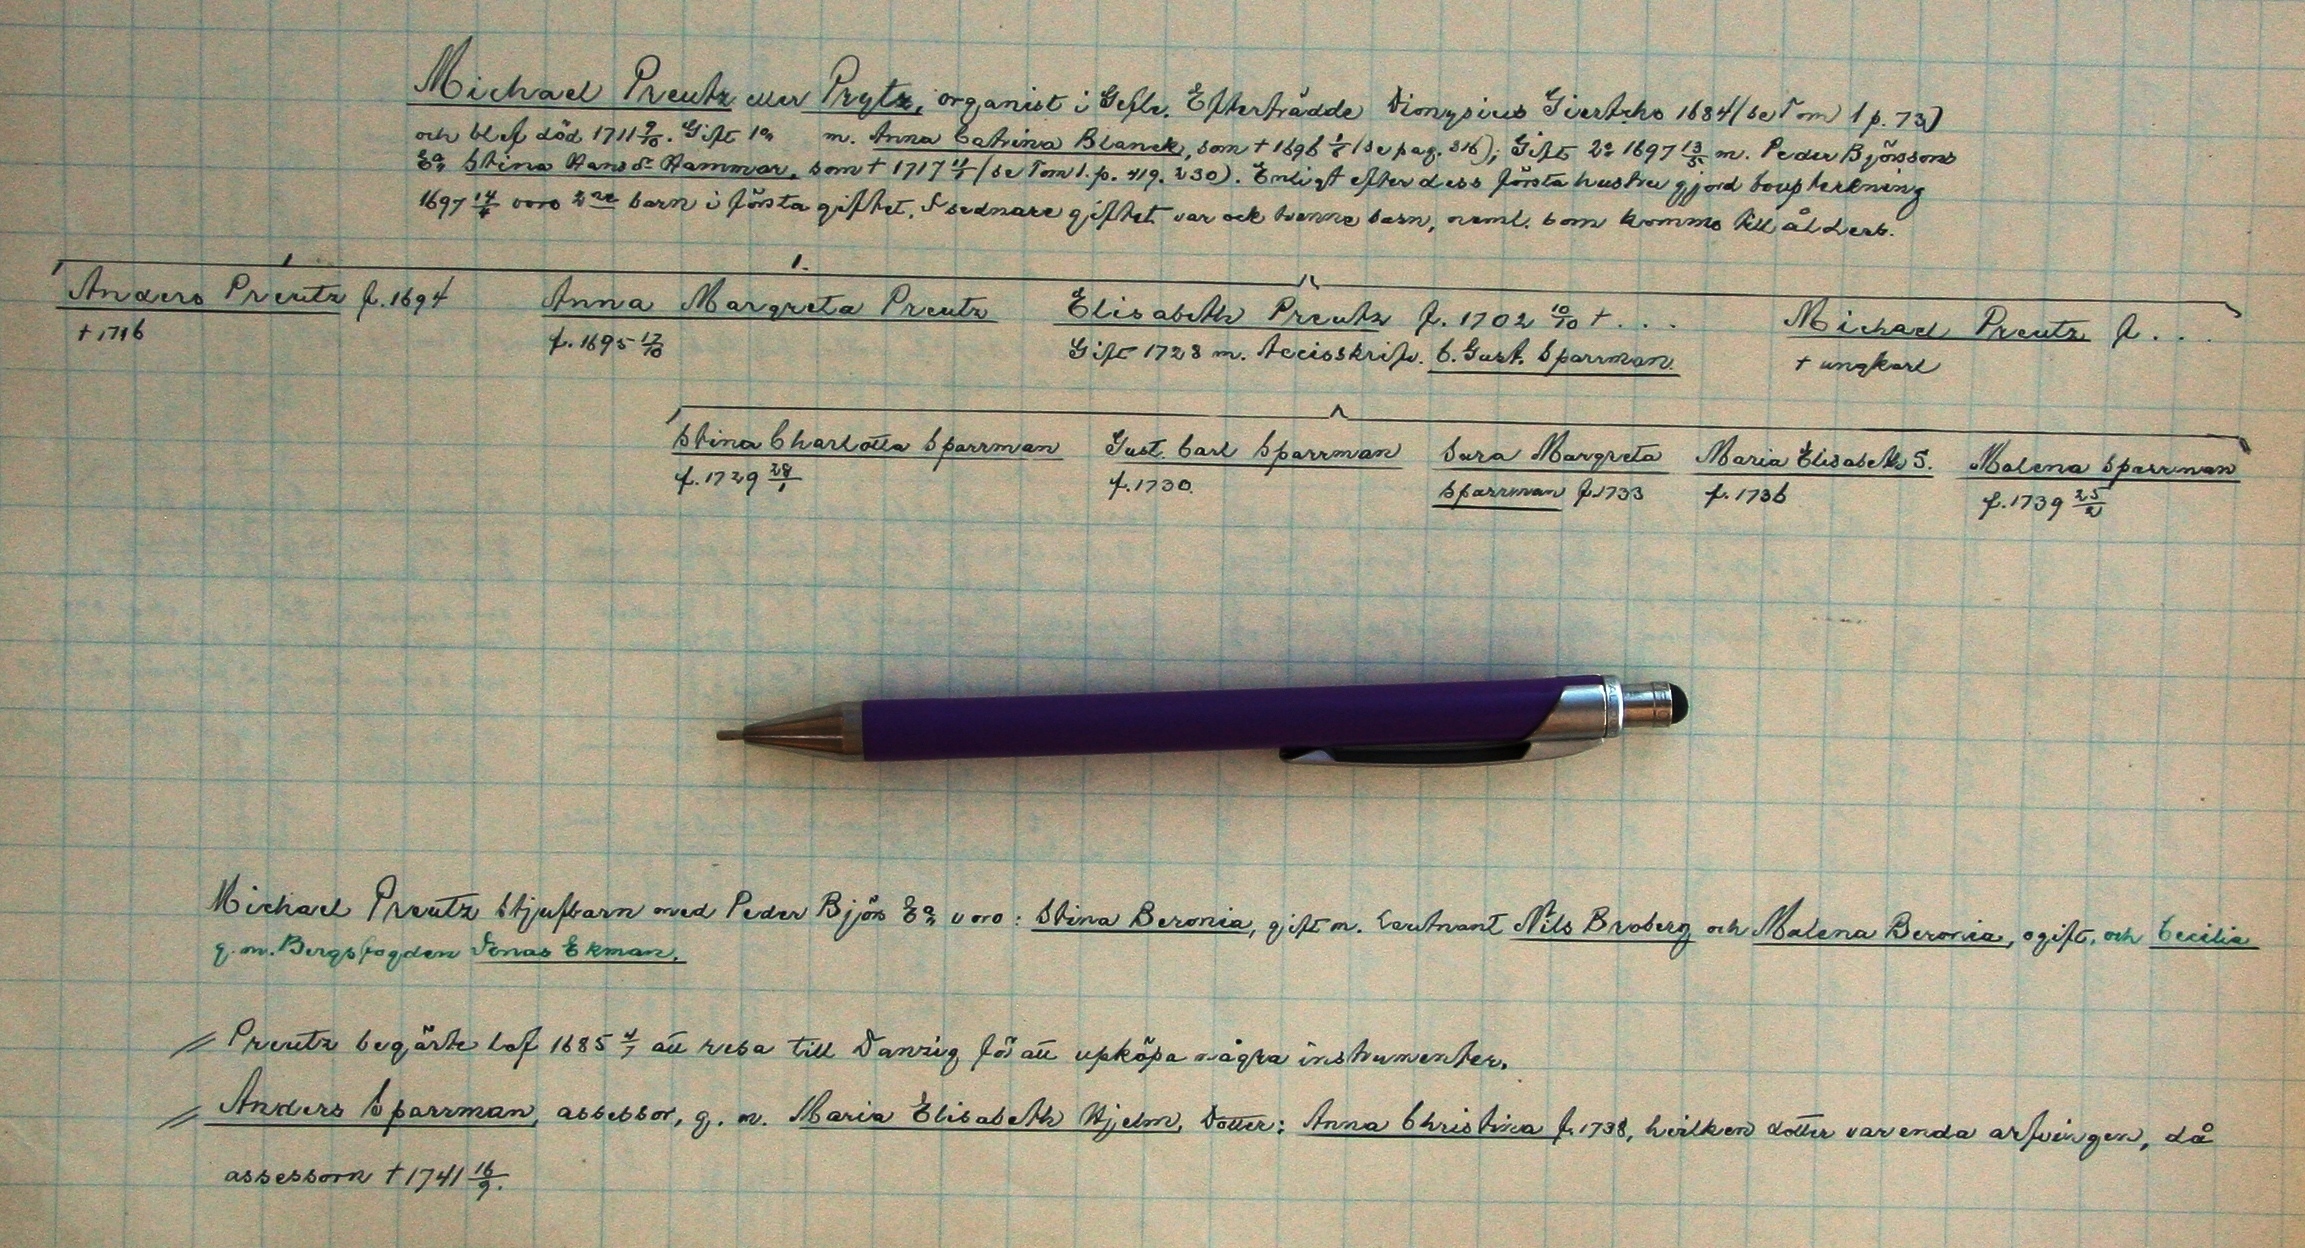 Michael Preutz eller Prytz, organist i Gefle. Efterträdde Dionysius Giertzho 1684 (se Tom 1 p. 73)
och blef död 1711 9/10. Gift 1o m. Anna Catrina Blanck, som † 1696 1/8 (se pag. 316); Gift 2o 1697 13/5 m. Peder Björssons
Ea Stina Hansdr Hammar, som † 1717 (se Tom 1. p. 419. 230). Enligt efter dess första hustru gjord boupteckning
1697 14/4 voro 2ne barn i första giftet. I sednare giftet var ock tvenne barn, neml. som kommo till ålders.
Anders Preutz f. 1694
† 1716
1.
Anna Margreta Preutz
f. 1695 17/10
Elisabeth Preutz f. 1702 10/10 † . . .
Gift 1728 m. Accisskrifv. C. Gust. Sparrman.
Michael Preutz f. . .
† ungkarl
Stina Charlotta Sparrman
f. 1729 28/1
Gust. Carl Sparrman
f. 1730.
Sara Margreta
Sparrman f. 1733
Maria Elisabeth S.
f. 1736
Malena Sparrman
f. 1739 25/2
Michael Preutz Stjufbarn med Peder Björs Ea voro: Stina Beronia, gift m. Leutnant Nils Broberg och Malena Beronia, ogift, och Cecilia
g. m. Bergsfogden Jonas Ekman.
// Preutz begärte lof 1685 4/7 att resa till Danzig för att upköpa några instrumenter.
// Anders Sparrman, assessor, g. m. Maria Elisabeth Hjelm, Dotter: Anna Christina f. 1738, hvilken dotter var enda arfvingen, då
assessorn † 1741 16/9.